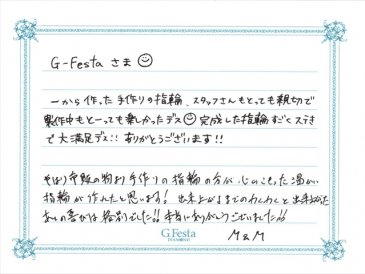 G-Festa さま
一から作った手作りの指輪、スタッフさんもとっても親切で
製作中もとーっても楽しかったデス 完成した指輪すごくステキ
で大満足デス!! ありがとうございます!!
やはり市販の物より手作りの指輪の方が心のこもった温かい
指輪が作れたと思います! 出来上がるまでのわくわくと出来上がった
ときの喜びは格別でした!! 本当にありがとうございました!!
G.Festa
DIAMOND
M & M